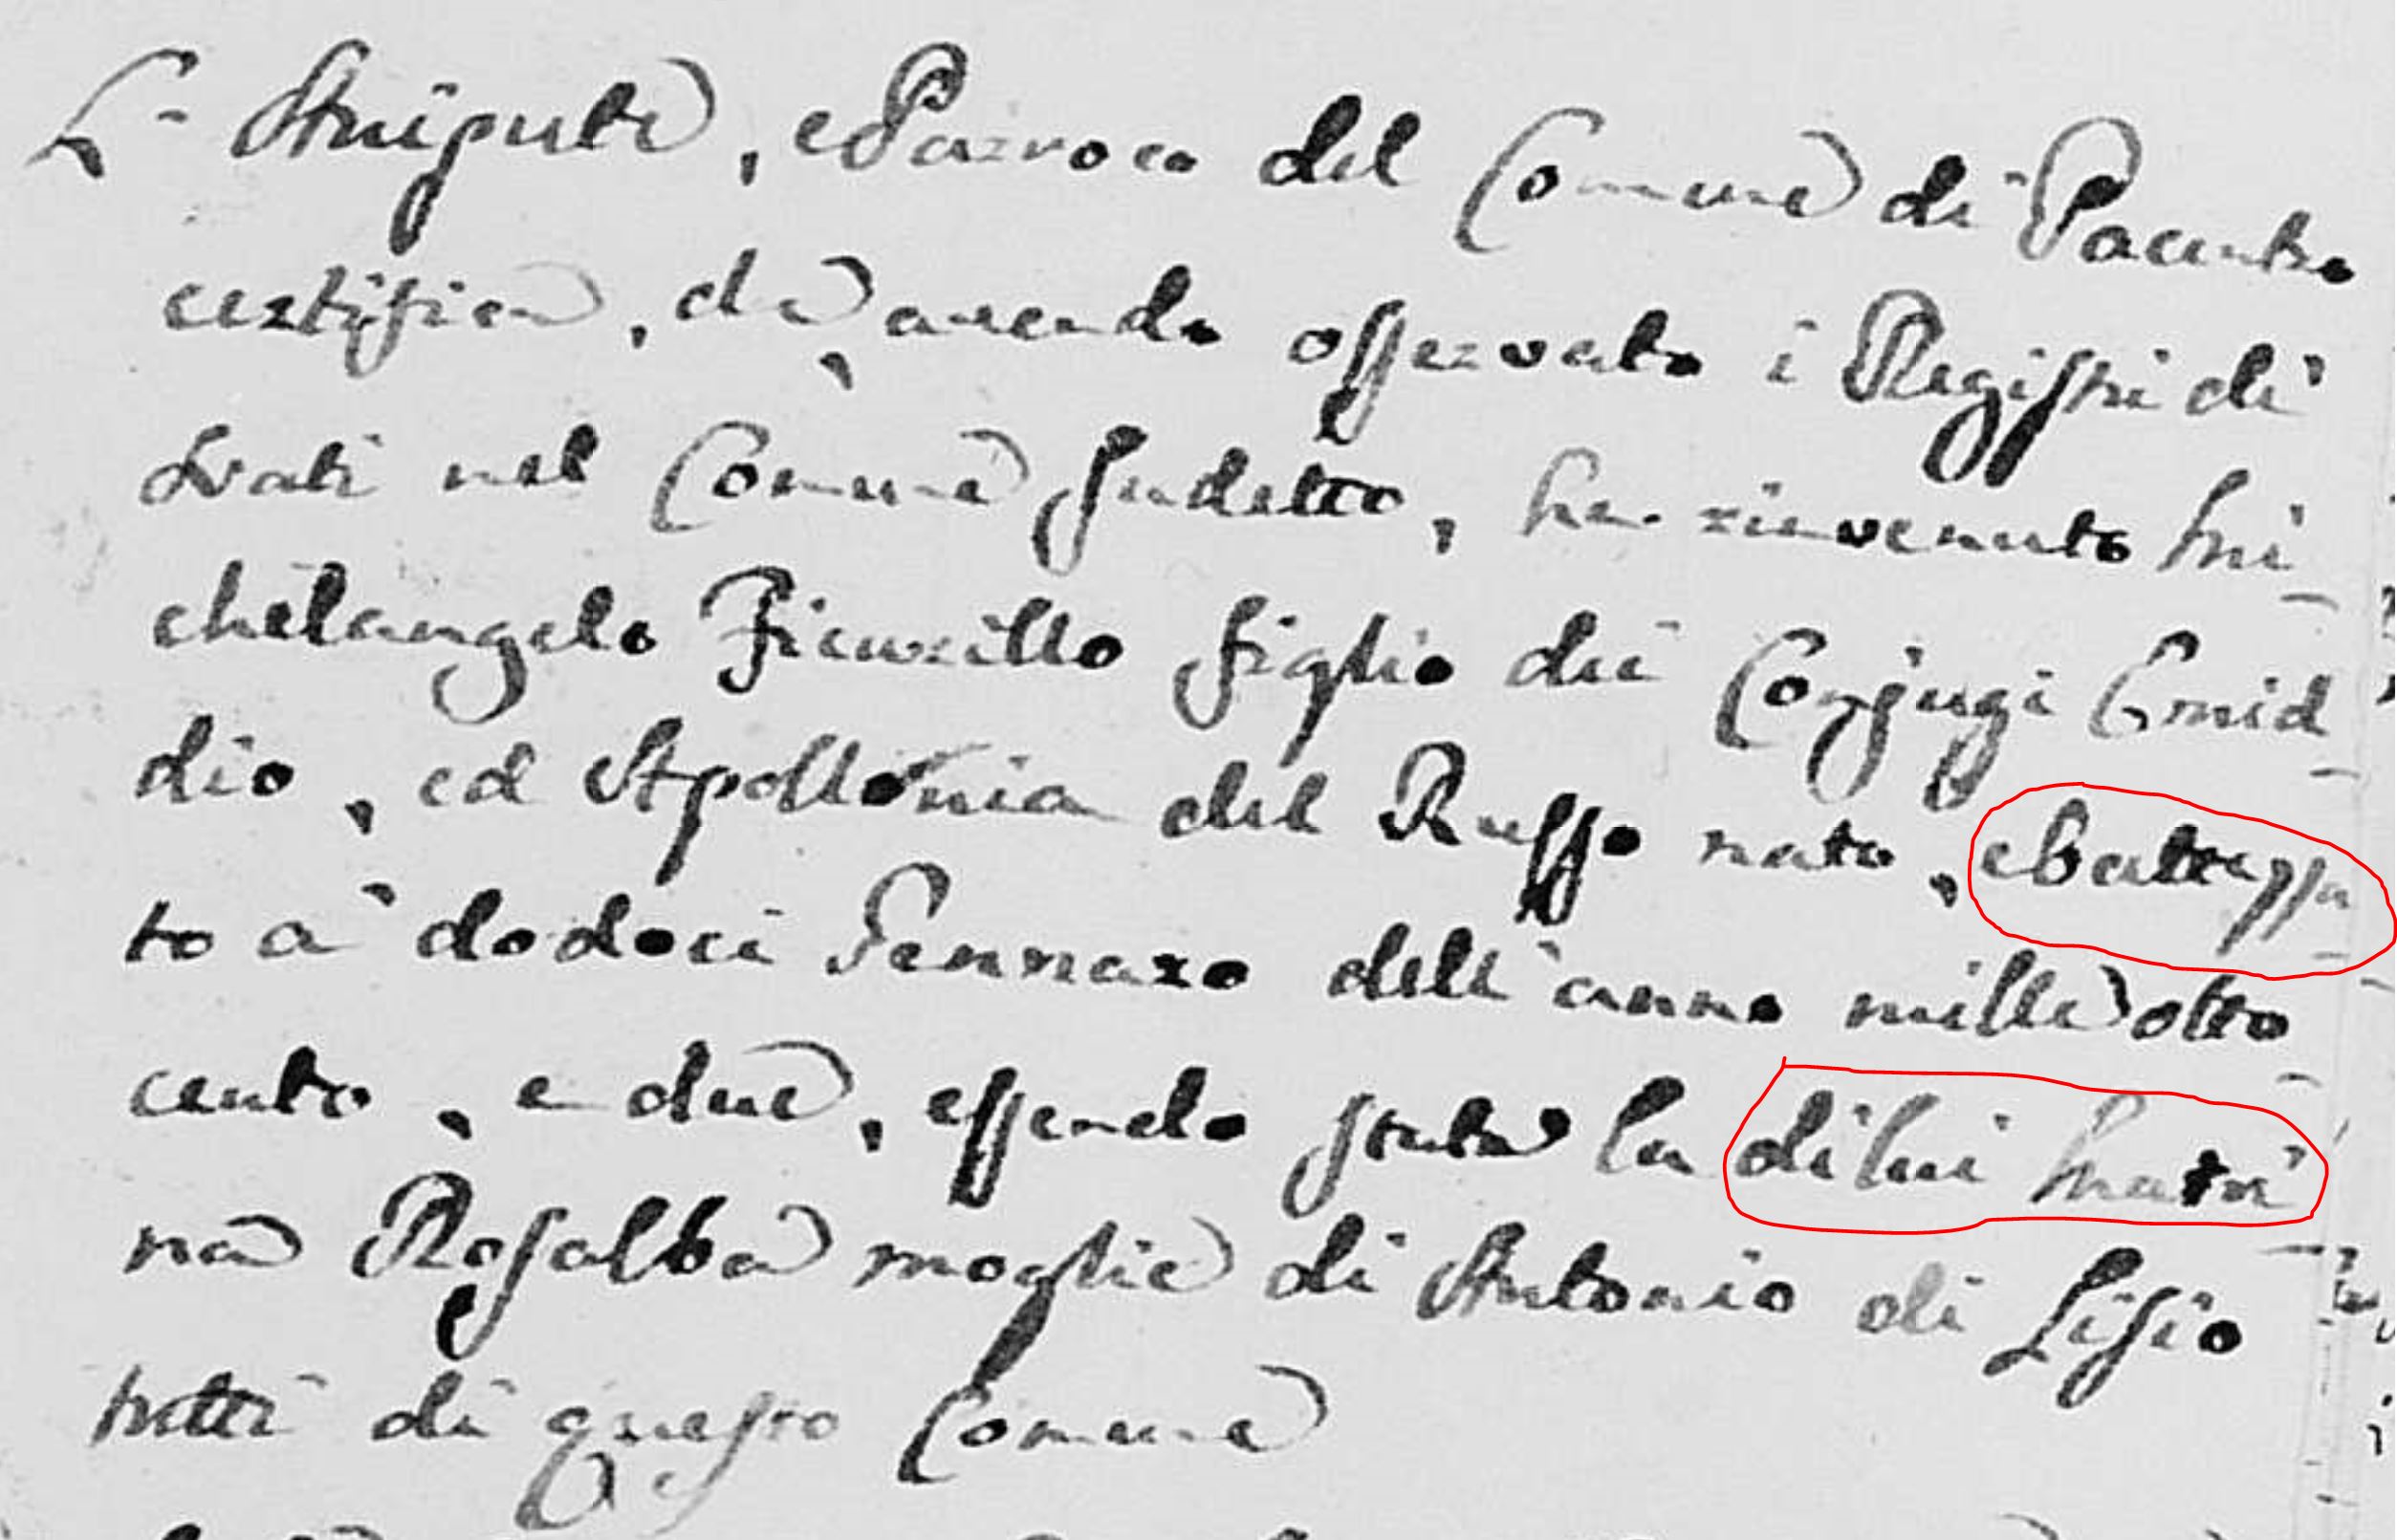 L'Arciprete, e Parroco del Comune di Pacentro
certifica, che avendo osservato i Registri di
Nati nel Comune sudetto, ha rinvenuto Mi
chelangelo Ficurillo figlio dei Conjugi Emid
dio, ed Apollonia del Russo nato, e battezza
to a' dodoci Gennaro dell'anno mille otto
cento, e due, essendo stata la di lui Matri
na Rosalba moglie di Antonio di Lisio
tutti di questo Comune